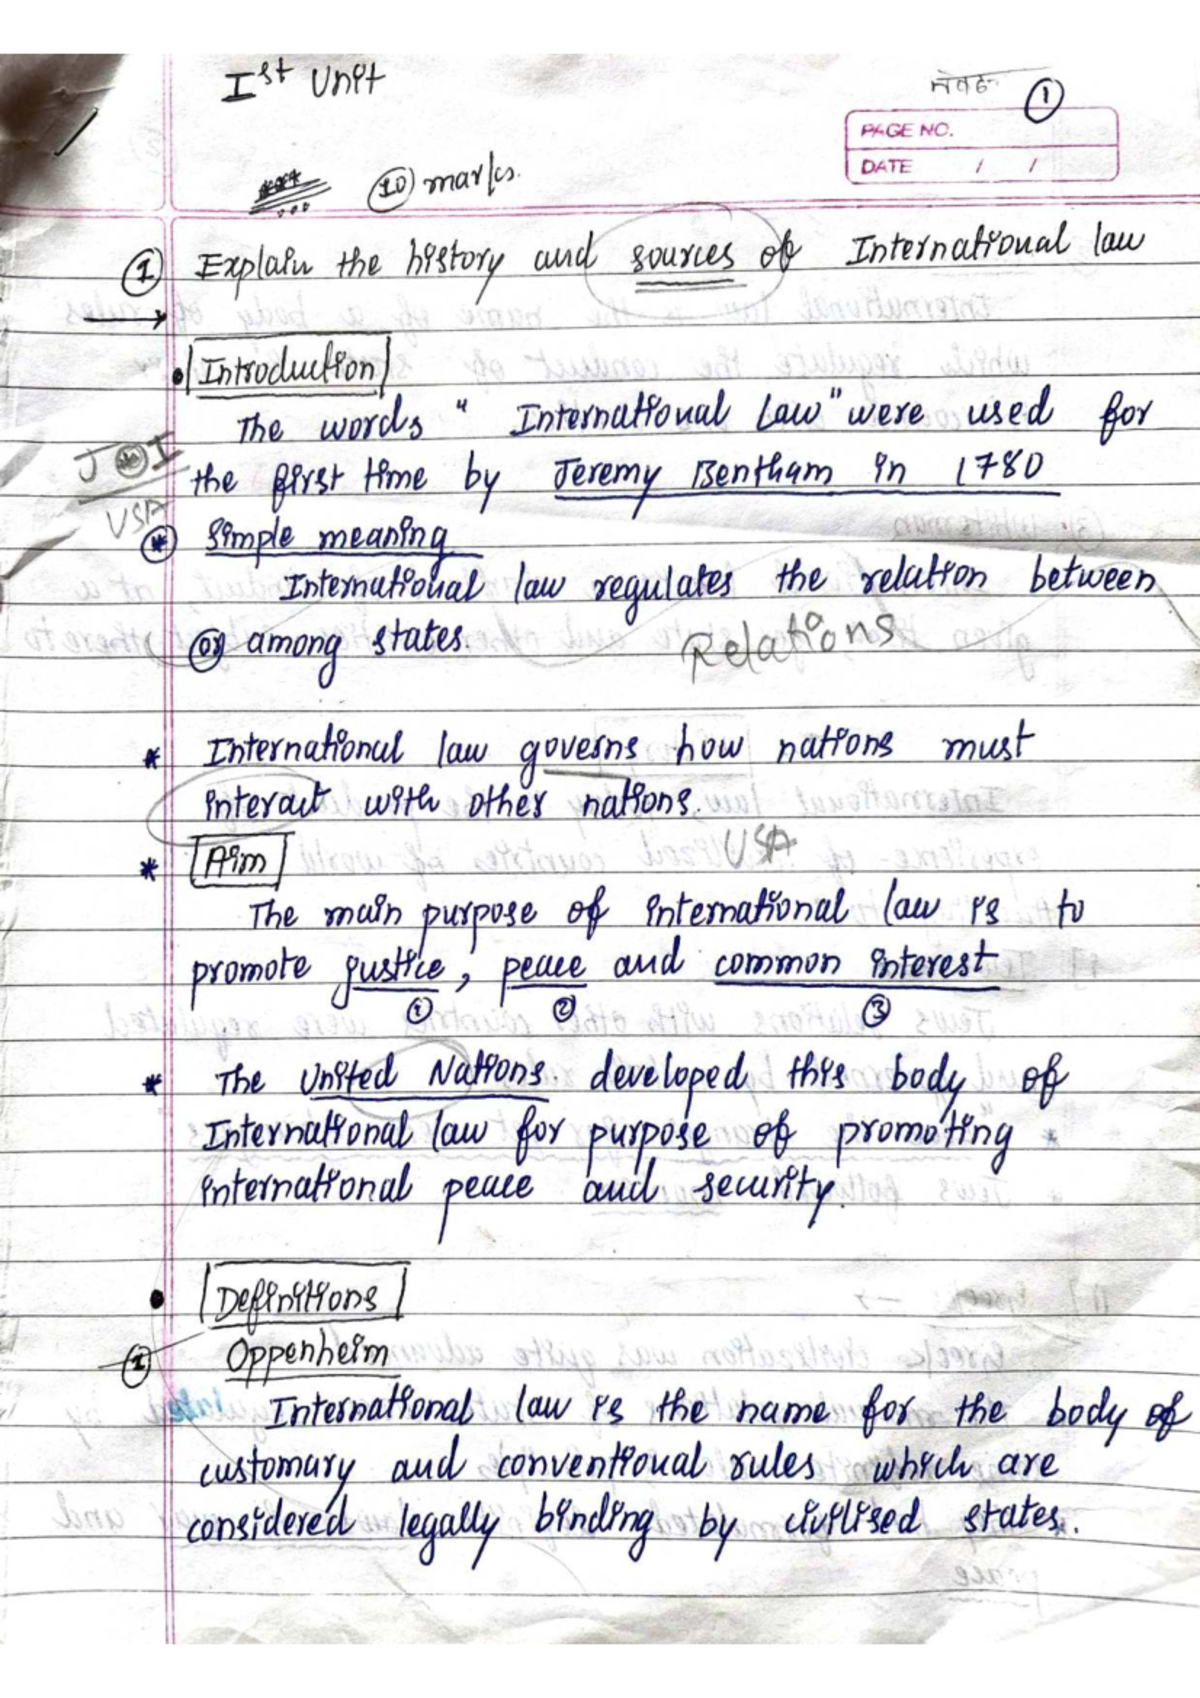 Ist Unit
1
PAGE NO.
DATE / /
10 marks.
1 Explain the history and sources of International law
Introduction
The words " International Law" were used for
the first time by Jeremy Bentham in 1780
USA
* Simple meaning
International law regulates the relation between
or among states.
Relations
* International law governs how nations must
interact with other nations.
* Aim
USA
The main purpose of international law is to
promote justice, peace and common interest
1 2 3
* The United Nations. developed this body of
International law for purpose of promoting
international peace and security.
• Definitions
1 Oppenheim
International law is the name for the body of
customary and conventional rules which are
considered legally binding by civilised states.